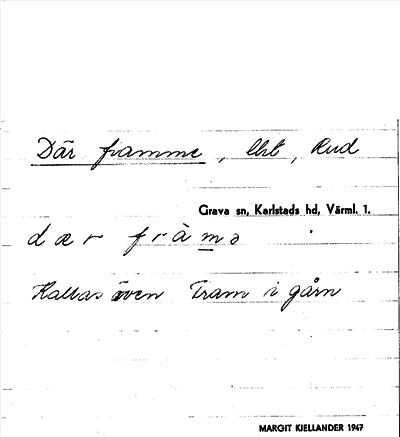 Där framme, lht, Rud
Grava sn, Karlstads hd, Värml. 1.
dær fràmə
Kallas även Fram i gårn
MARGIT KJELLANDER 1947